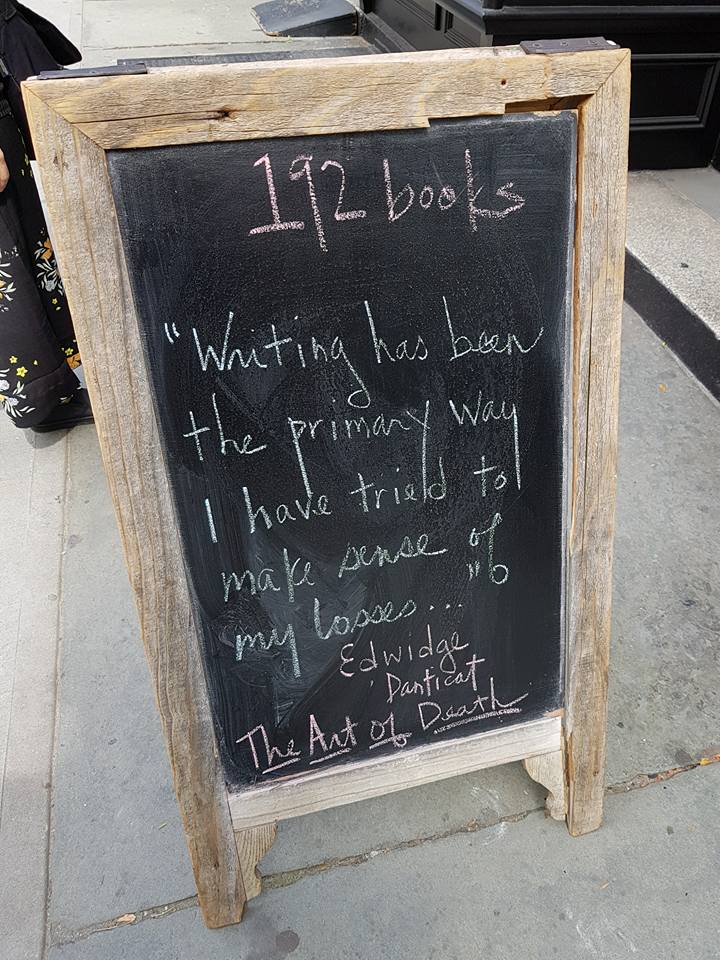 192 books
"Writing has been
the primary way
I have tried to
make sense of
my losses..."
Edwidge
Danticat
The Art of Death